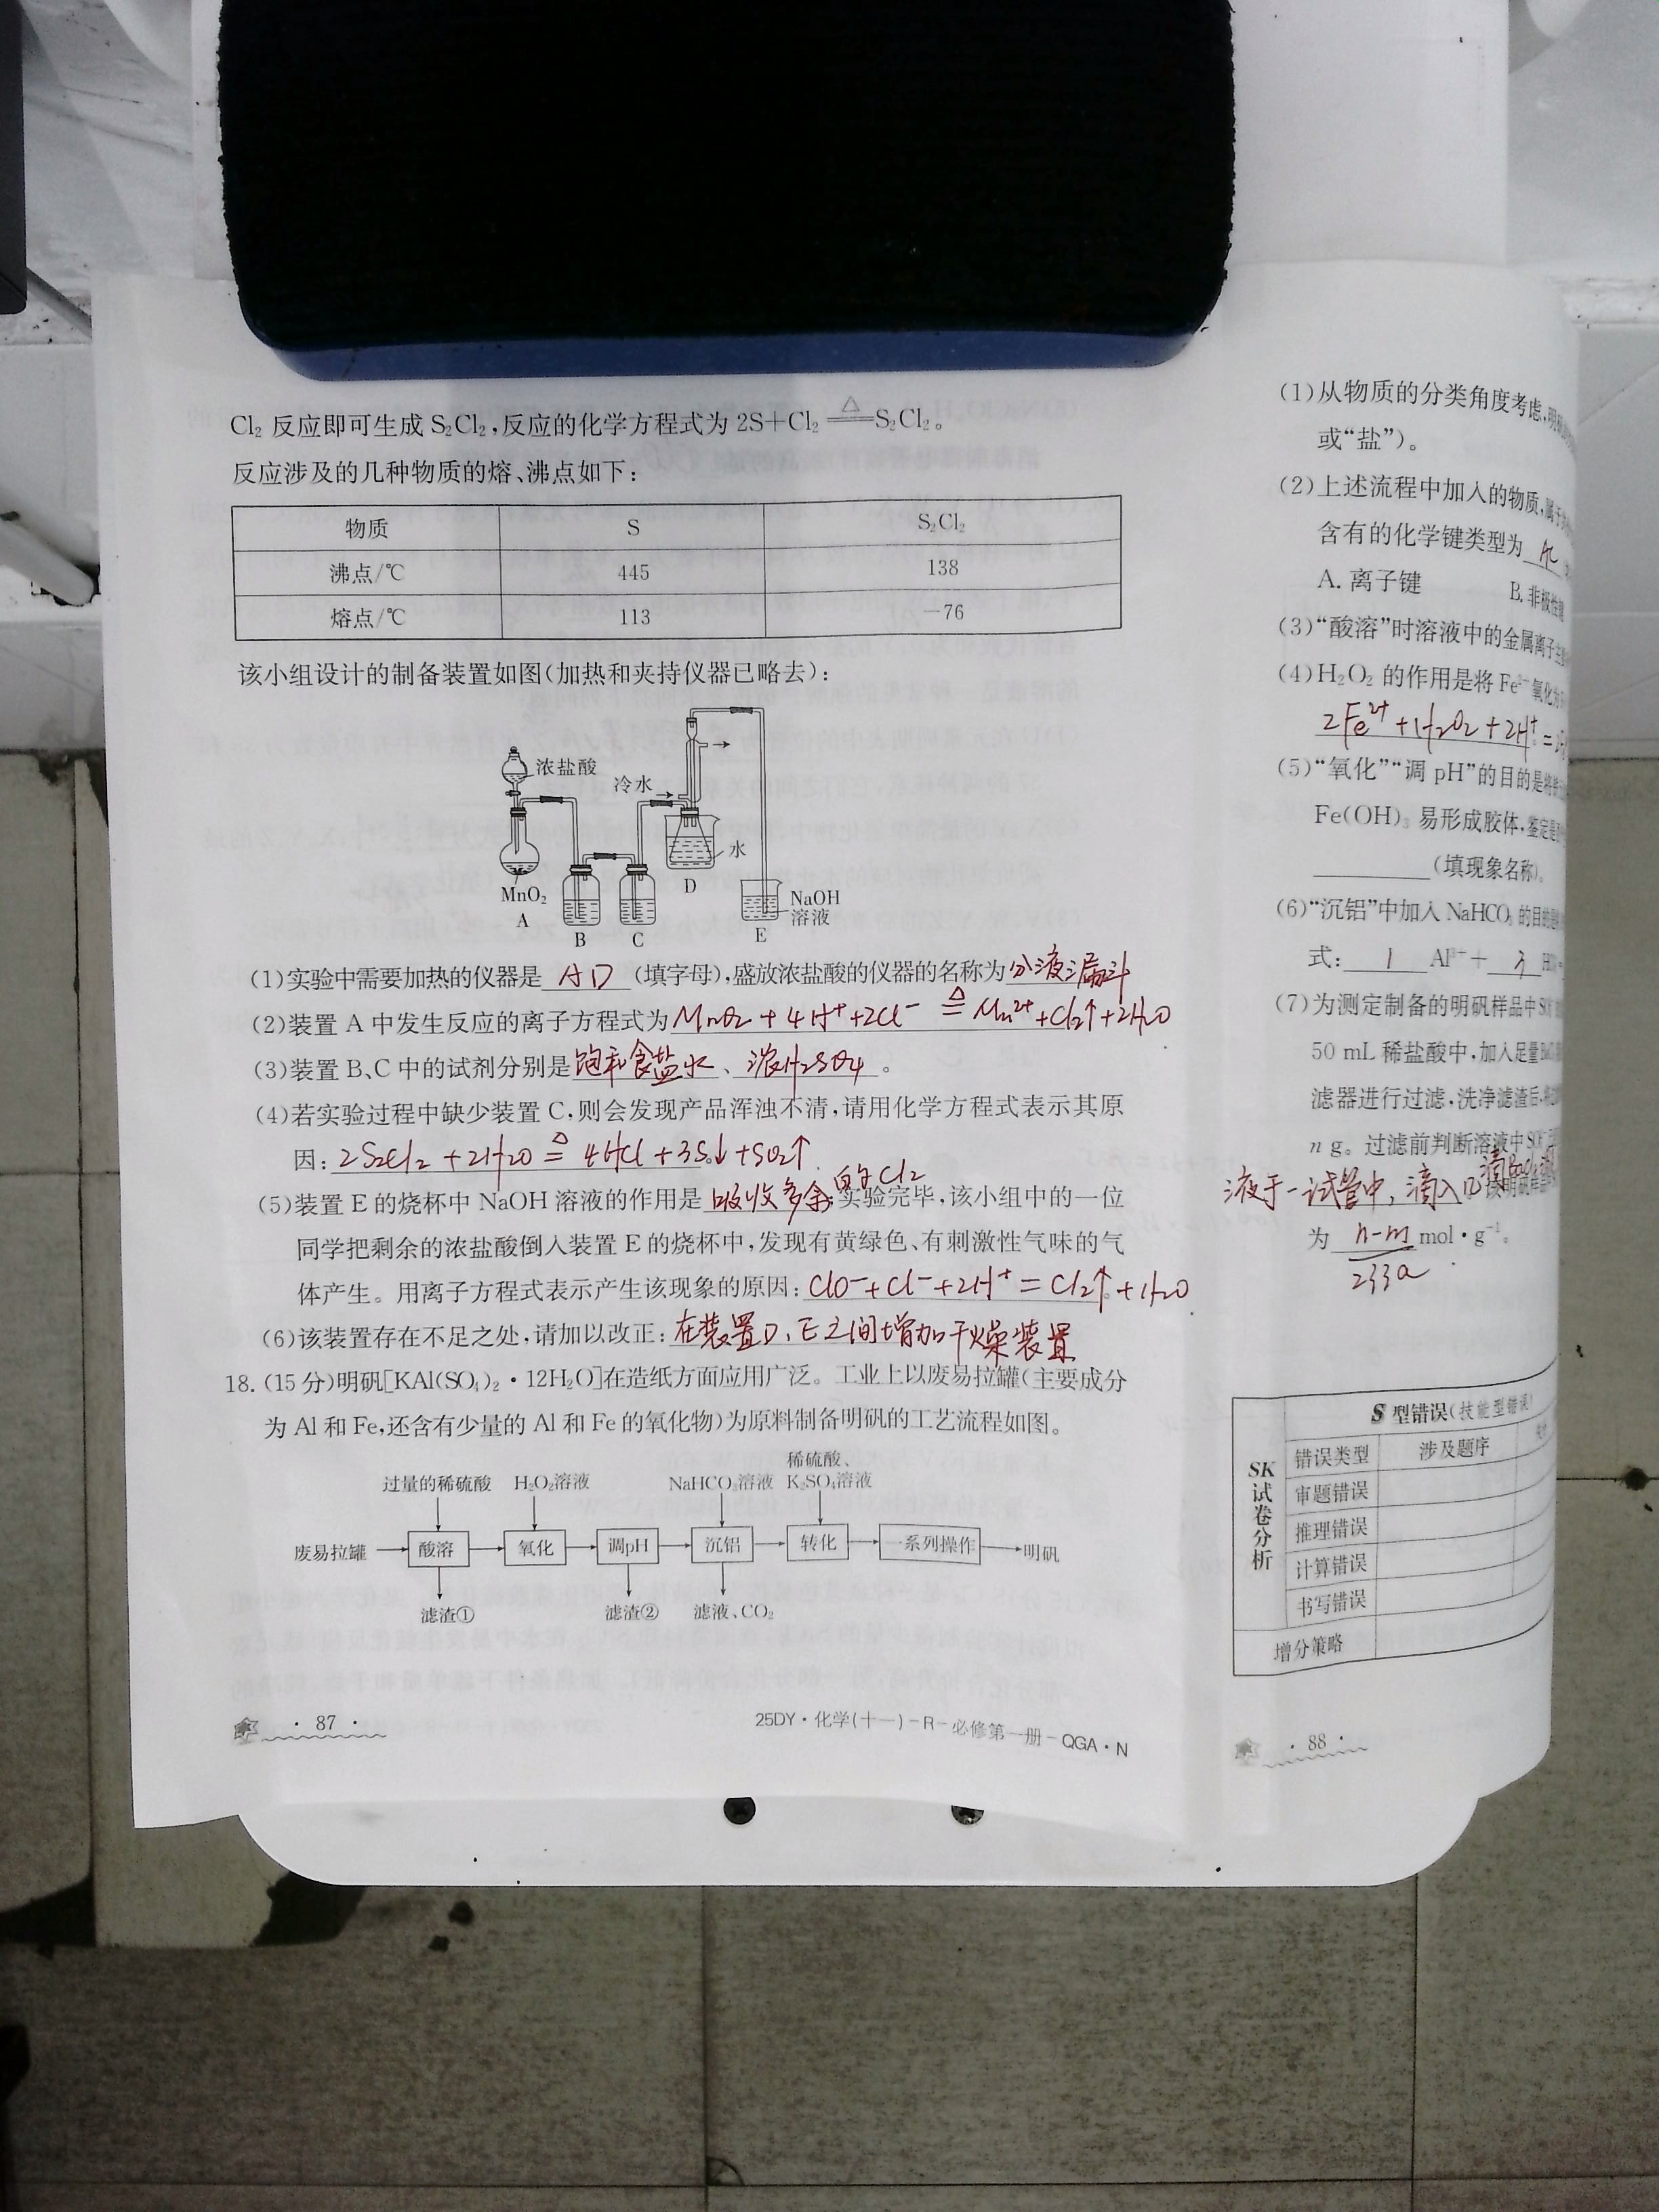 Cl₂ 反应即可生成 S₂Cl₂,反应的化学方程式为 2S+Cl₂ ≜ S₂Cl₂。
反应涉及的几种物质的熔、沸点如下:
物质 S S₂Cl₂
沸点/℃ 445 138
熔点/℃ 113 −76
该小组设计的制备装置如图(加热和夹持仪器已略去):
浓盐酸
冷水
水
MnO₂
NaOH
溶液
A B C D E
(1)实验中需要加热的仪器是 AD (填字母),盛放浓盐酸的仪器的名称为分液漏斗
(2)装置 A 中发生反应的离子方程式为MnO₂ + 4H⁺ +2Cl⁻ ≜ Mn²⁺ +Cl₂↑ +2H₂O
(3)装置 B、C 中的试剂分别是饱和食盐水、浓H₂SO₄。
(4)若实验过程中缺少装置 C,则会发现产品浑浊不清,请用化学方程式表示其原
因: 2S₂Cl₂ + 2H₂O ≜ 4HCl + 3S↓ + SO₂↑.
(5)装置 E 的烧杯中 NaOH 溶液的作用是 吸收多余的Cl₂ 实验完毕,该小组中的一位
同学把剩余的浓盐酸倒入装置 E 的烧杯中,发现有黄绿色、有刺激性气味的气
体产生。用离子方程式表示产生该现象的原因: ClO⁻+Cl⁻+2H⁺ = Cl₂↑+H₂O
(6)该装置存在不足之处,请加以改正: 在装置D、E之间增加干燥装置
18. (15 分)明矾[KAl(SO₄)₂·12H₂O]在造纸方面应用广泛。工业上以废易拉罐(主要成分
为 Al 和 Fe,还含有少量的 Al 和 Fe 的氧化物)为原料制备明矾的工艺流程如图。
过量的稀硫酸 H₂O₂溶液 NaHCO₃溶液 稀硫酸、K₂SO₄溶液
废易拉罐 酸溶 氧化 调pH 沉铝 转化 一系列操作 明矾
滤渣① 滤渣② 滤液、CO₂
· 87 ·
25DY·化学(十一)-R-必修第一册-QGA·N
(1)从物质的分类角度考虑,明
或“盐”)。
(2)上述流程中加入的物质,属于
含有的化学键类型为 AC
A. 离子键 B. 非极性键
(3)“酸溶”时溶液中的金属离子主
(4)H₂O₂ 的作用是将 Fe²⁺ 氧化为
2Fe²⁺ + H₂O₂ + 2H⁺ =
(5)“氧化”“调 pH”的目的是将
Fe(OH)₃ 易形成胶体,鉴定是
(填现象名称)。
(6)“沉铝”中加入 NaHCO₃ 的目的
式: 1 Al³⁺ + 3 
(7)为测定制备的明矾样品中
50 mL 稀盐酸中,加入足量
滤器进行过滤,洗净滤渣后,
n g。过滤前判断溶液中
液于一试管中,滴入几滴
为 n-m/233a mol·g⁻¹。
SK试卷分析
S 型错误(技能型错误)
错误类型 涉及题序
审题错误
推理错误
计算错误
书写错误
增分策略
· 88 ·